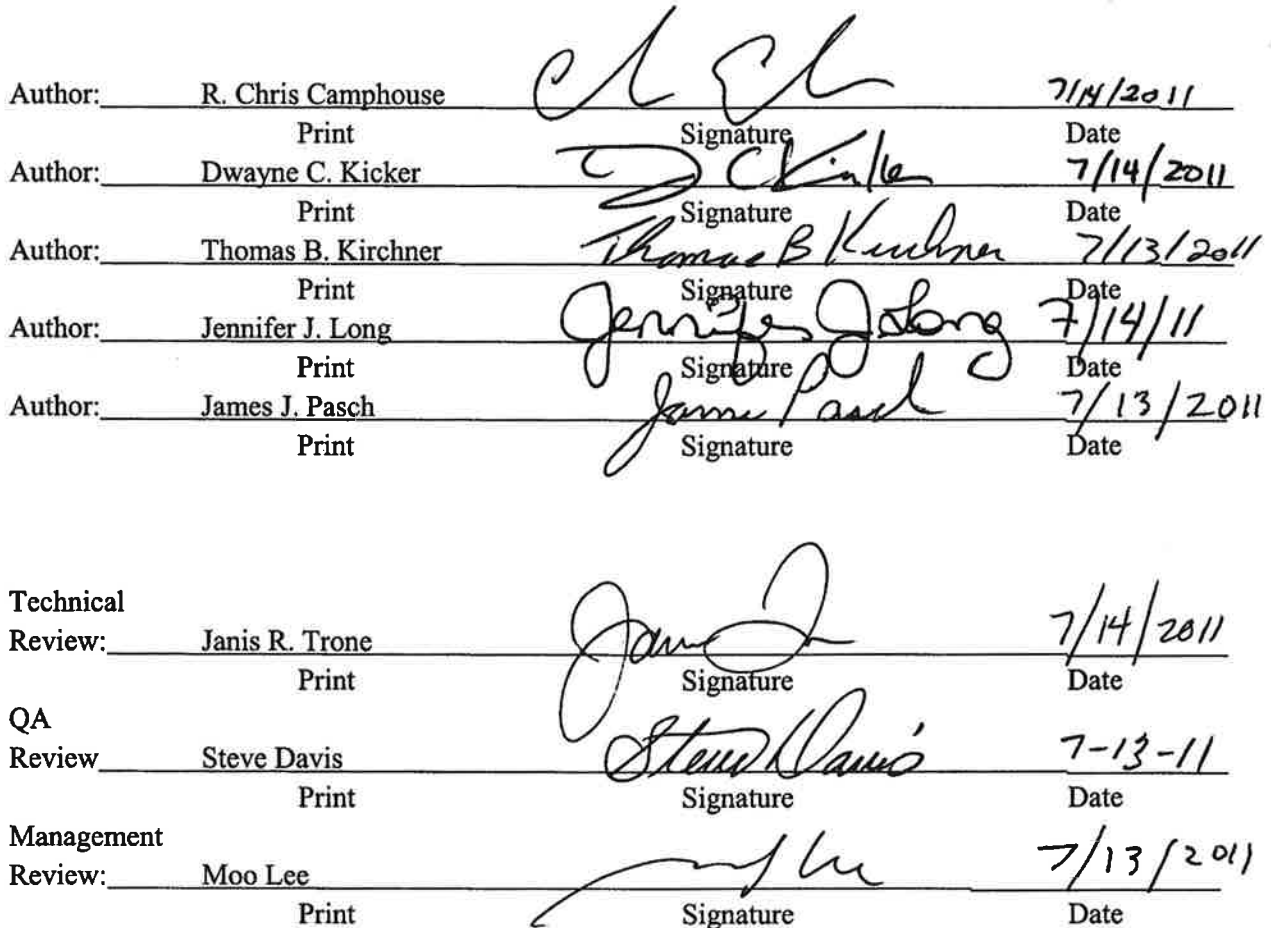 Author: R. Chris Camphouse 7/14/2011
Print Signature Date
Author: Dwayne C. Kicker D C Kicker 7/14/2011
Print Signature Date
Author: Thomas B. Kirchner Thomas B Kirchner 7/13/2011
Print Signature Date
Author: Jennifer J. Long Jennifer J Long 7/14/11
Print Signature Date
Author: James J. Pasch James Pasch 7/13/2011
Print Signature Date
Technical
Review: Janis R. Trone 7/14/2011
Print Signature Date
QA
Review Steve Davis Steve Davis 7-13-11
Print Signature Date
Management
Review: Moo Lee 7/13/2011
Print Signature Date